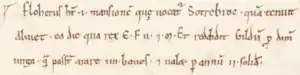 Floherus ht. i. mansione que uocat Sotrebroc. qua tenuit
Aluiet. ea die qua rex. E. f. u. 7. m. Et reddidit gildu p dim
uirga. qa poss arare. iiii. boues. 7 ualet p annu. ii. solid.